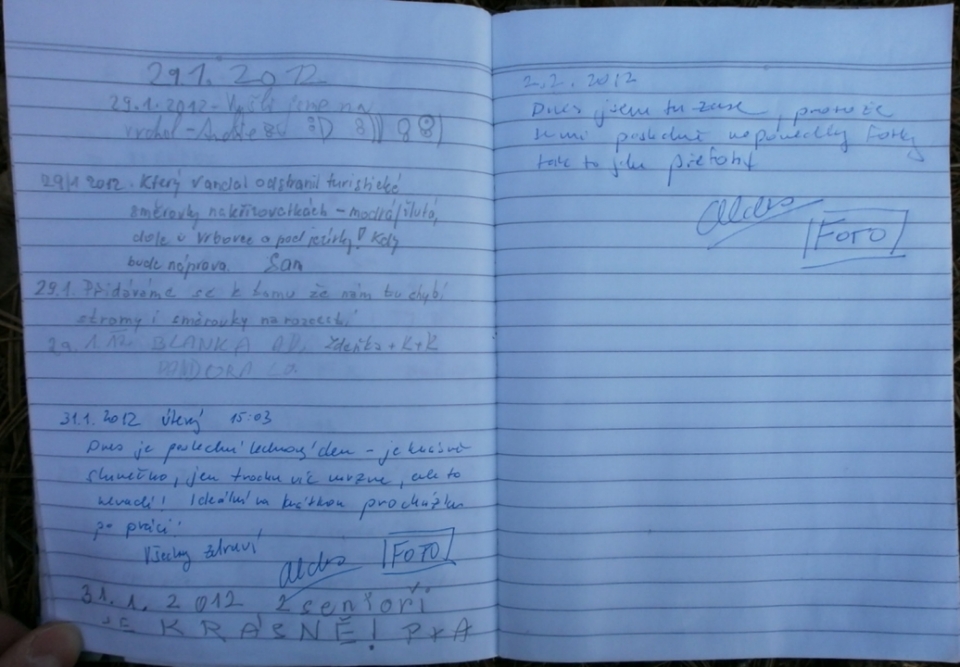 29.1. 2012
29.1.2012 - Vyšli jsme na
vrchol - :D 8)))
29/1 2012. Který vandal odstranil turistické
směrovky na křižovatkách - modrá/žlutá,
dole u Vrbovce a pod jezírky! Kdy
bude náprava. San
29.1. Přidáváme se k tomu že nám tu chybí
stromy i směrovky na rozcestí
29.1.12 BLANKA Zdeňka + K + K
31.1.2012 úterý 15:03
Dnes je poslední lednový den - je krásně
slunečno, jen trochu víc mrzne, ale to
nevadí! Ideální na krátkou procházku
po práci!
Všechny zdraví
FOTO
31.1. 2012 2 senioři
JE KRÁSNĚ! P+A
2.2. 2012
Dnes jsem tu zase, protože
se mi posledně nepovedly fotky
tak to jdu přefotit
FOTO